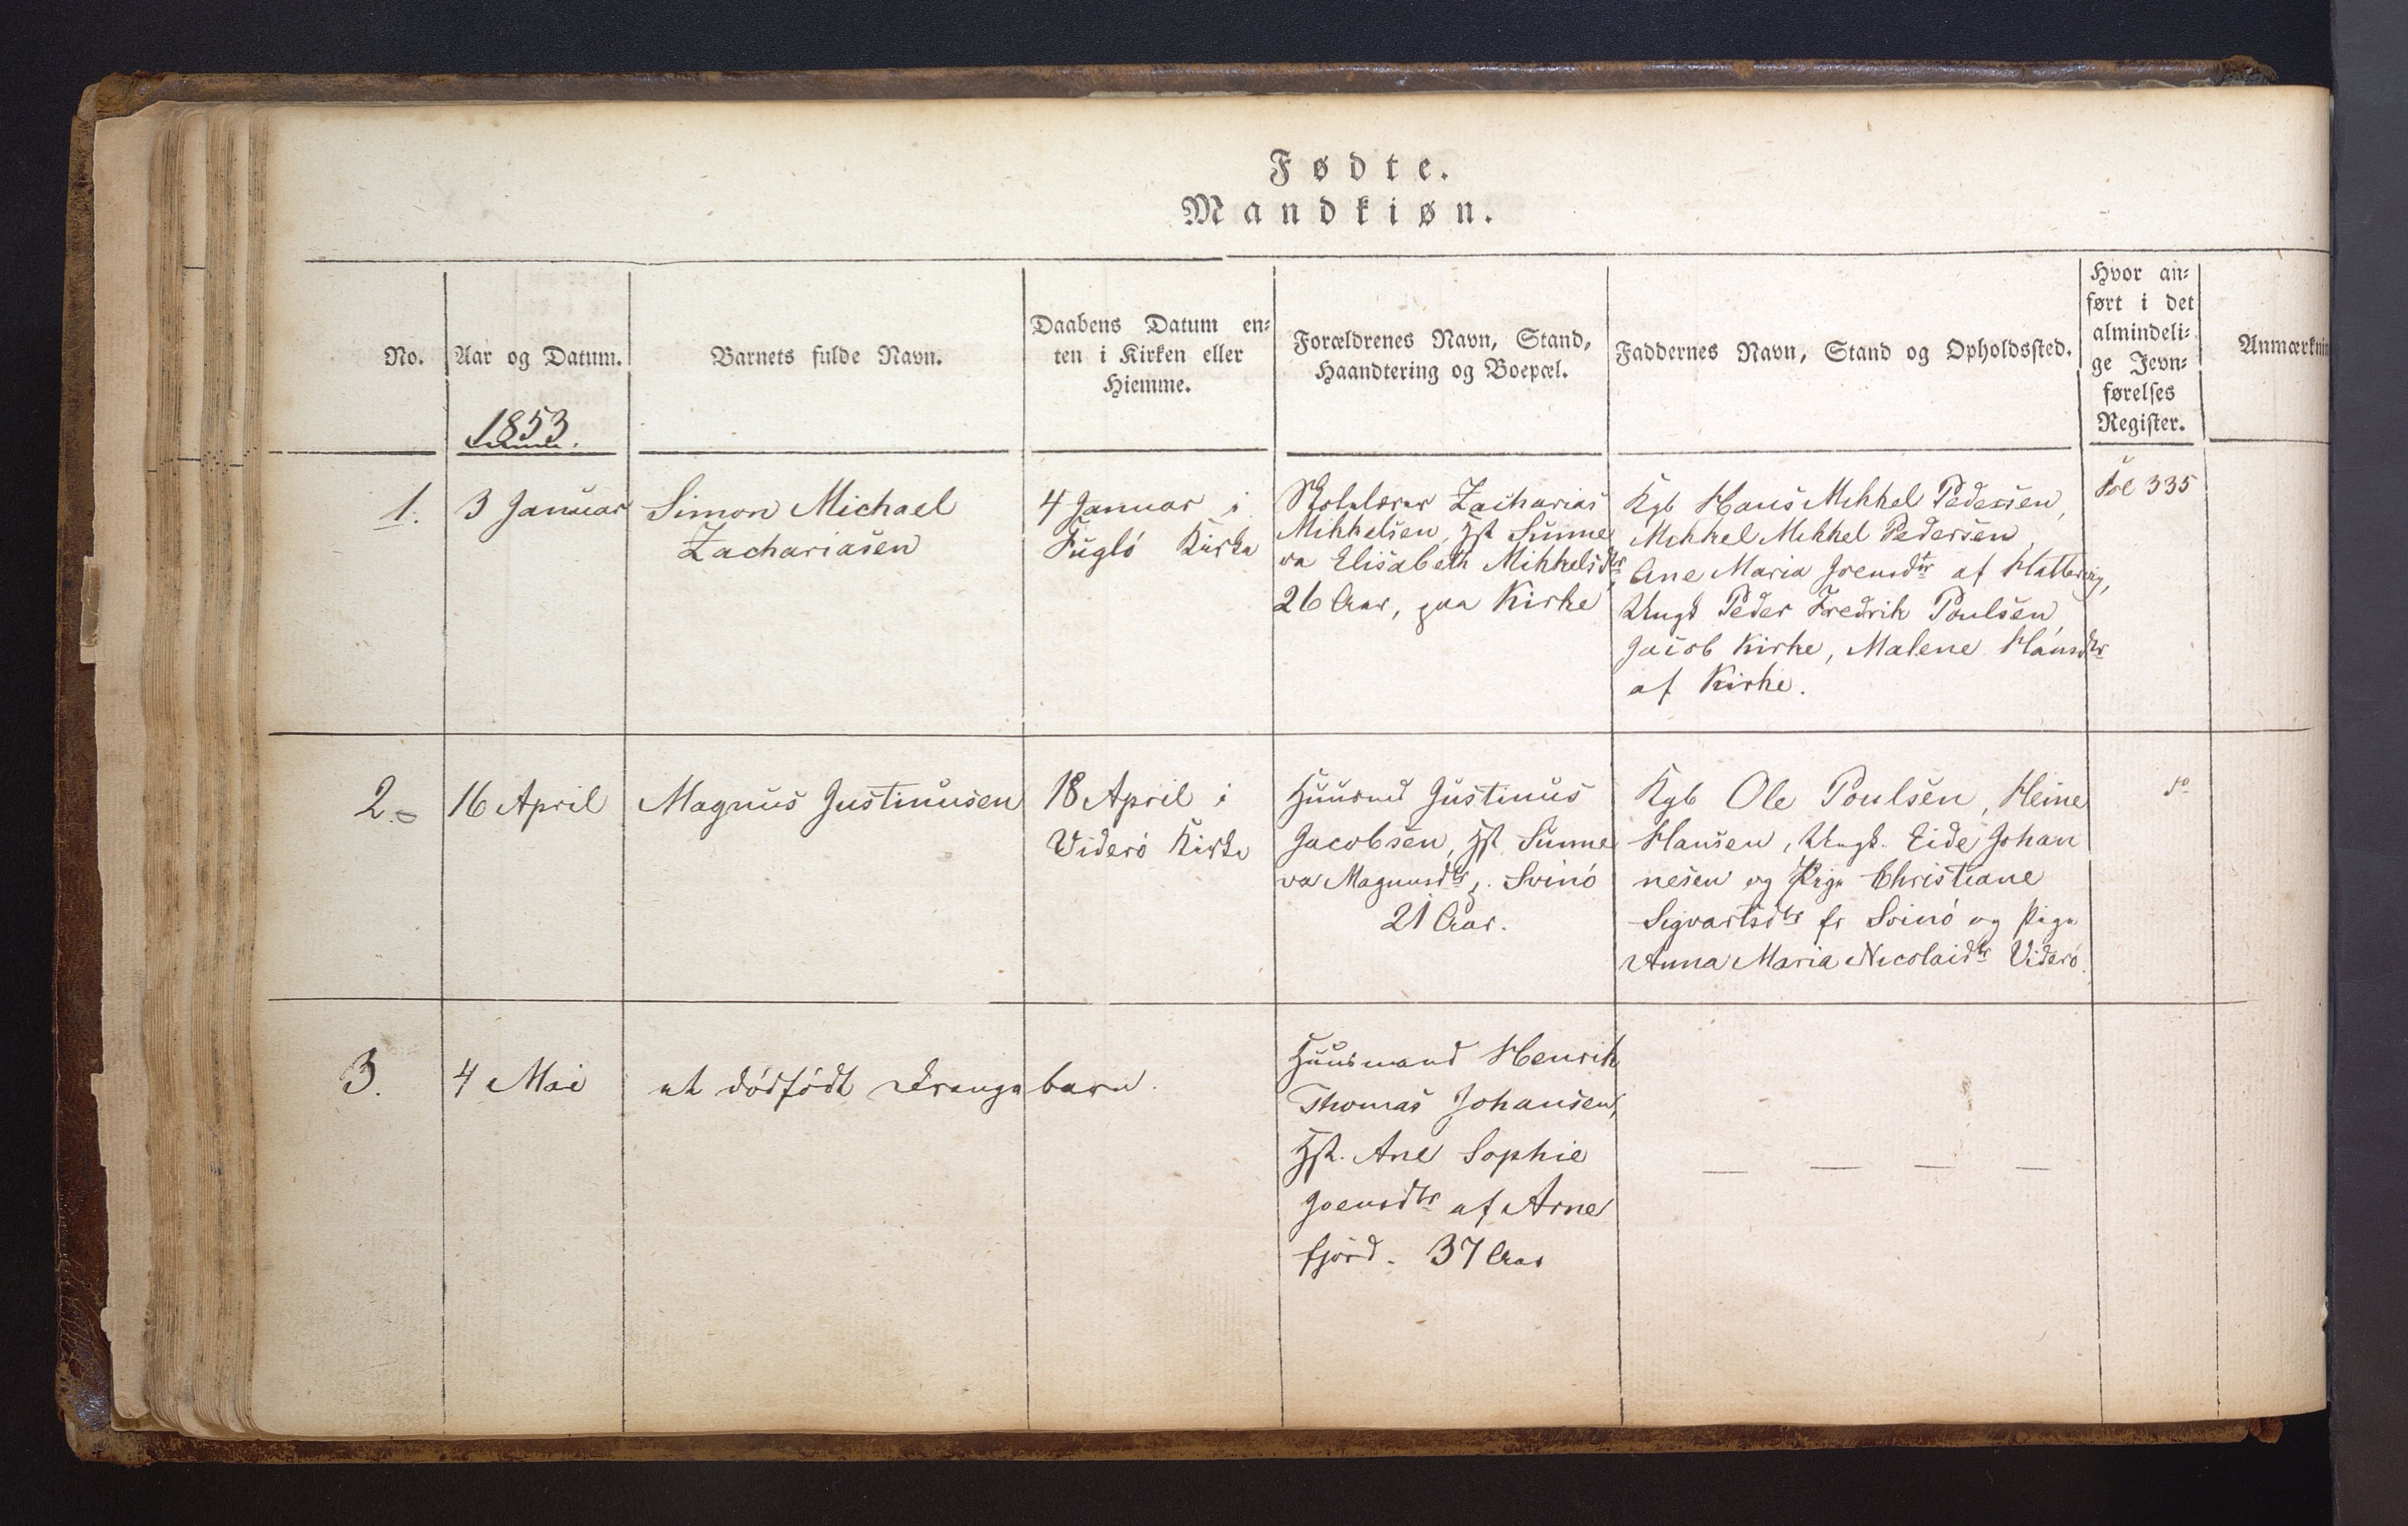 Fødte.
Mandkiøn.
No.
Aar og Datum.
1853.
Barnets fulde Navn.
Daabens Datum en-
ten i Kirken eller
Hiemme.
Forældrenes Navn, Stand,
Haandtering og Boepæl.
Faddernes Navn, Stand og Opholdssted.
Hvor an-
ført i det
almindeli-
ge Jevn-
førelses
Register.
Anmærknin
1.
3 Januar
Simon Michael
Zachariasen
4 Januar i
Fuglö Kirke
Skolelærer Zacharias
Mikkelsen, Hst Sunne
va Elisabeth Mikkelsdtr
26 Aar, paa Kirke
Kgb Hans Mikkel Pedersen,
Mikkel Mikkel Pedersen,
Ane Maria Joensdtr af Hattervig,
Ungk Peder Fredrik Poulsen,
Jacob Kirke, Malene Hansdtr
af Kirke.
Fol 335
2.
16 April
Magnus Justinusen
18 April i
Viderö Kirke
Huusmd Justinus
Jacobsen, Hst Sunne
va Magnusdtr, Svinö
21 Aar.
Kgb Ole Poulsen, Heine
Hansen, Ungk. Eide Johan
nesen og Pige Christiane
Sigvartsdtr fr Svinö og Pige
Anna Maria Nicolaidtr Viderö.
do
3.
4 Mai
et dödfödt Drenge barn.
Huusmand Henrik
Thomas Johansen,
Hst. Ane Sophie
Joensdtr af Arne
fjord. 37 Aar
— — — —